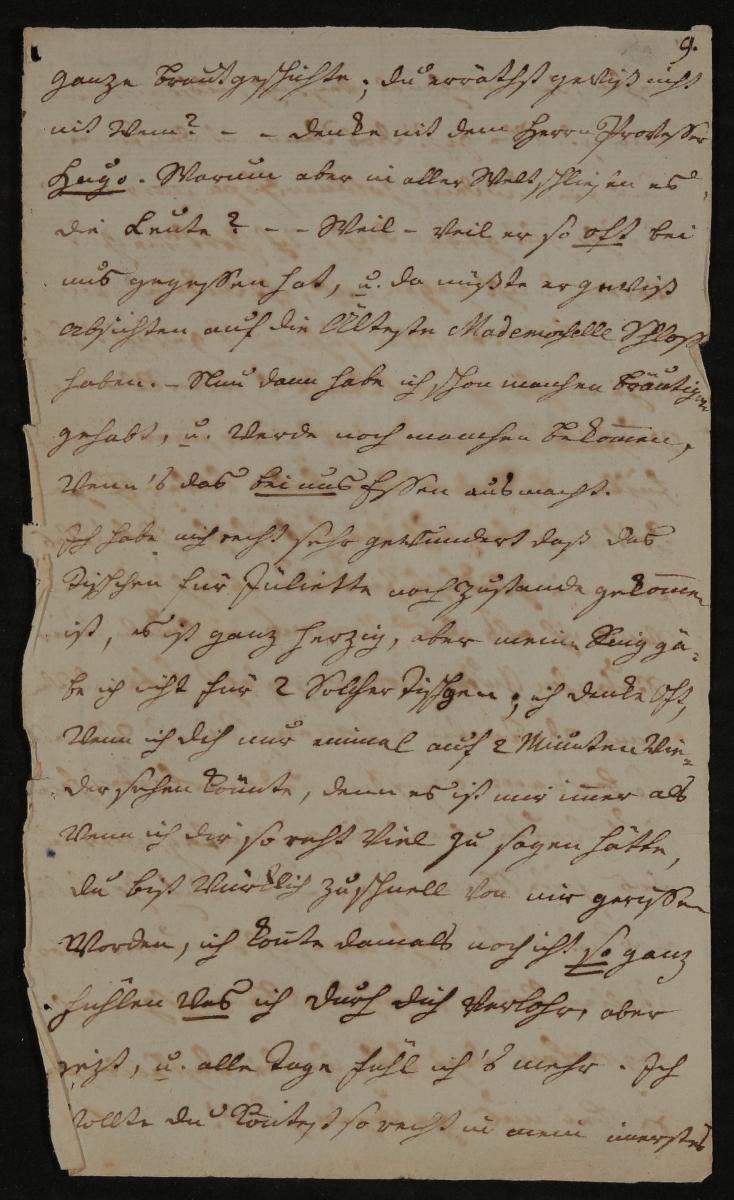 9.
ganze Brautgeschichte; du erräthst gewiß nicht
mit Wem? – – denke mit dem Herrn Professer
Hugo. Warum aber in aller Welt schliesen es
die Leute? – – Weil – weil er so oft bei
uns gegessen hat, u. da müßte er gewiß
absichten auf die Älteste Mademoiselle Schloss
haben. – Nun dann habe ich schon manchen Bräutigam
gehabt, u. werde noch manchen bekommen,
wenn's das bei uns Essen ausmacht.
Ich habe mich recht sehr gewundert daß das
Tischchen für Juliette noch zustande gekommen
ist, es ist ganz herzig, aber meinen Ring gä-
be ich nicht für 2 Solcher Tischgen; ich denke Oft,
wenn ich dich nur einmal auf 2 Minuten Wie-
der sehen könnte, denn es ist mir immer als
wenn ich dir so recht Viel zu sagen hätte,
du bist würklich zu schnell von mir gerissen
worden, ich konte damals noch nicht so ganz
fühlen Was ich durch dich Verlohr, aber
jezt, u. alle Tage fühl ich's mehr. Ich
wollte du köntest so recht in mein innerstes